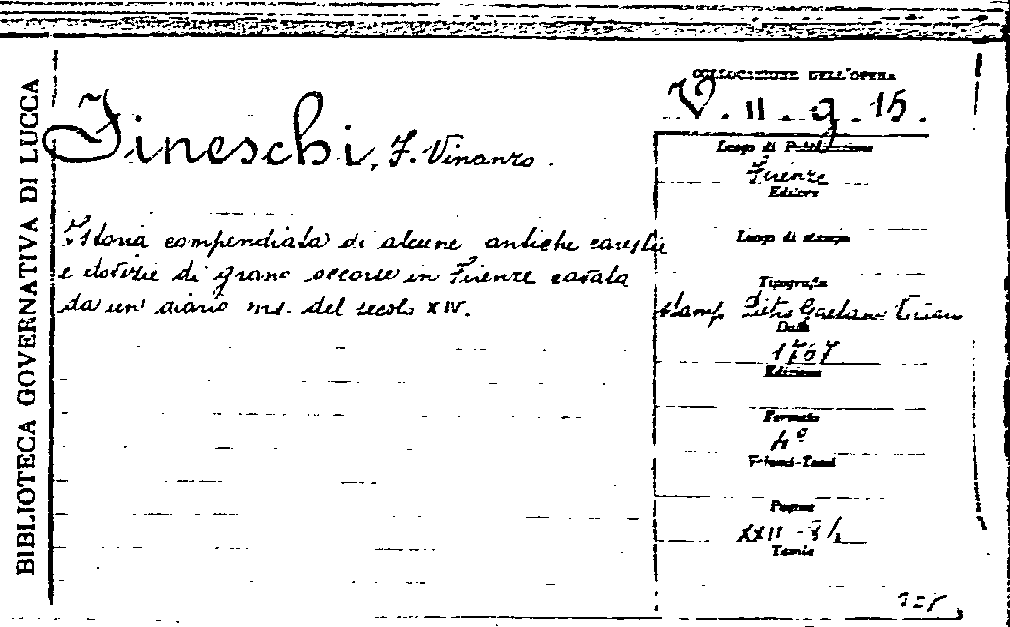 BIBLIOTECA GOVERNATIVA DI LUCCA
COLLOCAZIONE DELL'OPERA
V. II. g. 15.
Fineschi, F. Vinanzo.
Istoria compendiata di alcune antiche carestie
e dovizie di grano occorse in Firenze cavata
da un diario ms. del secolo XIV.
Luogo di Pubblicazione
Firenze
Editore
Luogo di stampa
Tipografia
Stamp. Pietro Gaetano
Data
1767
Edizione
Formato
4º
Volumi-Tomi
Pagine
XXII -
Tomie